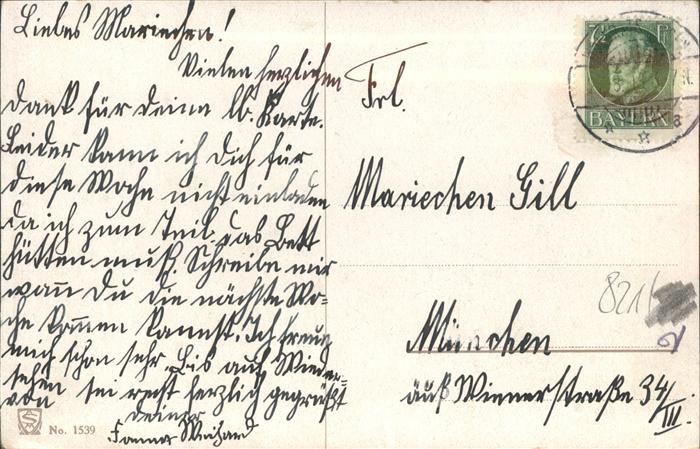 Liebes Mariechen!
Vielen herzlichen
Dank für deine lb. Karte.
Leider kann ich Dich für
diese Woche nicht einladen
da ich zum Teil das Bett
hütten muß. Schreibe mir
wann Du die nächste Wo-
che kommen kannst. Ich freue
mich schon sehr. Bis auf Wieder-
sehen sei recht herzlich gegrüßt
von deiner
No. 1539
Frl.
Mariechen Gill
München
auß Wienerstraße 34/III.
821
7½ PF
BAYERN